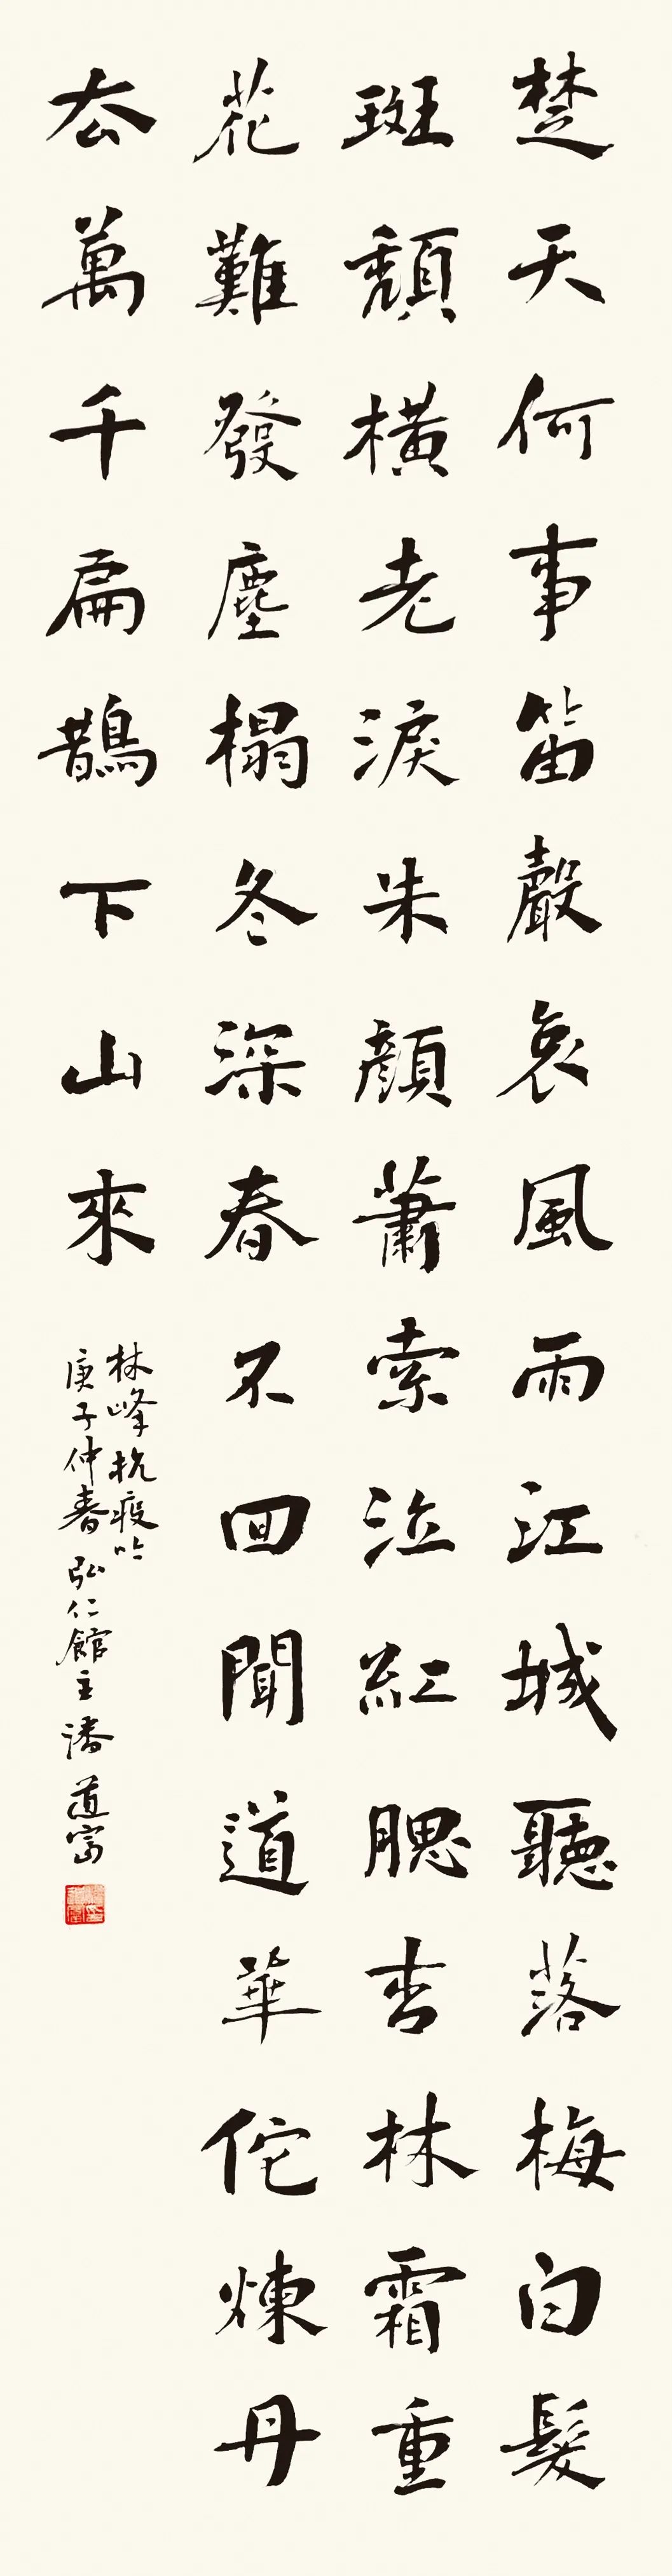 楚天何事笛聲哀風雨江城聽落梅白髮
斑頽橫老淚朱顔蕭索泣紅腮杏林霜重
花難發塵榻冬深春不回聞道華佗煉丹
去萬千扁鵲下山來
林峰抗疫吟
庚子仲春弘仁館主潘道富